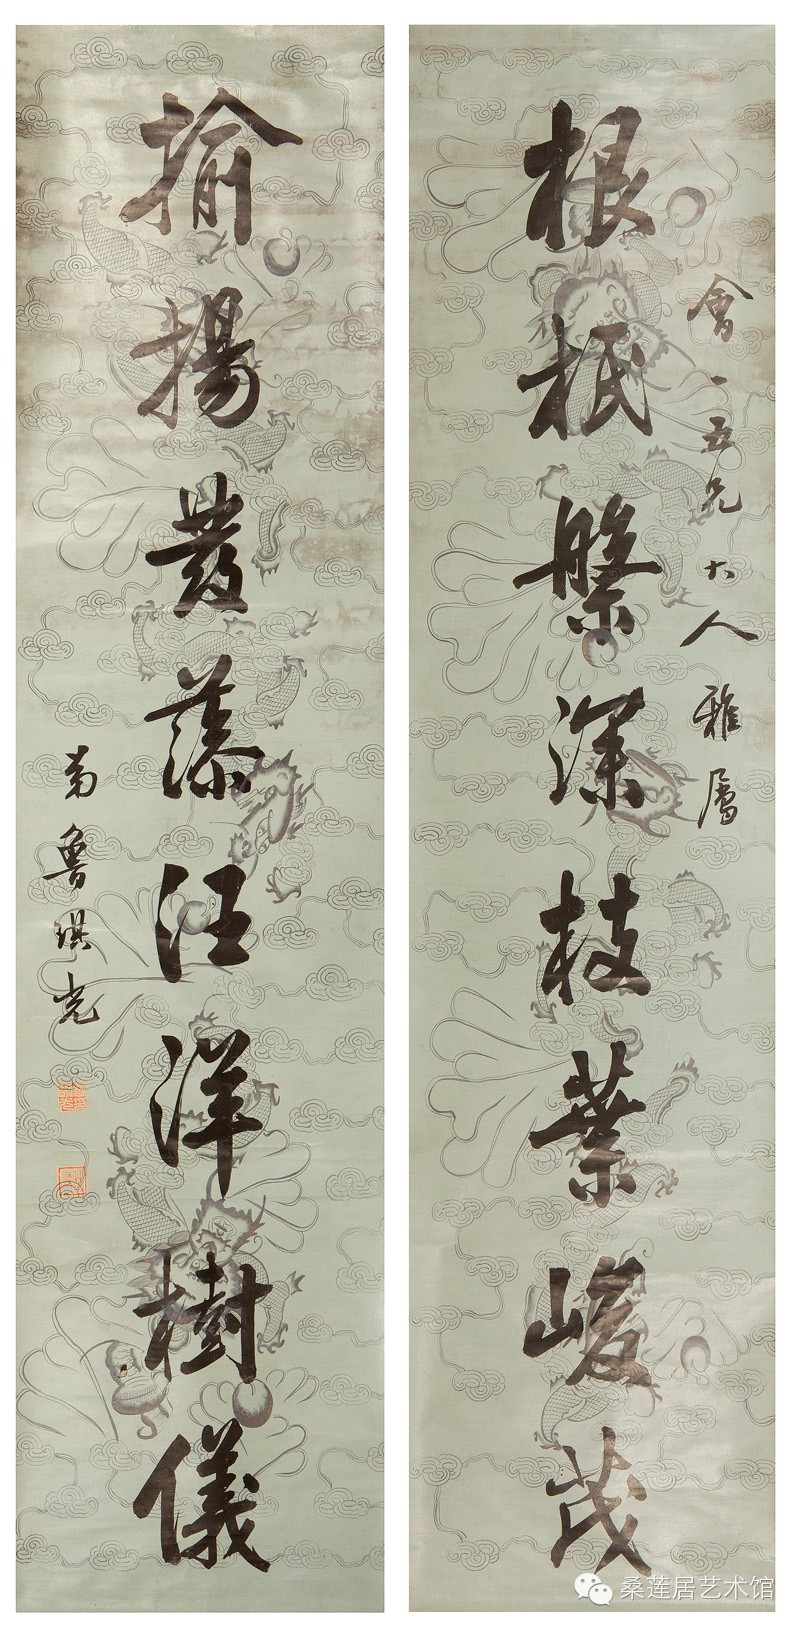 會一五兄大人雅屬
根柢槃深枝葉峻茂
揄揚發藻汪洋樹儀
弟魯琪光
桑莲居艺术馆